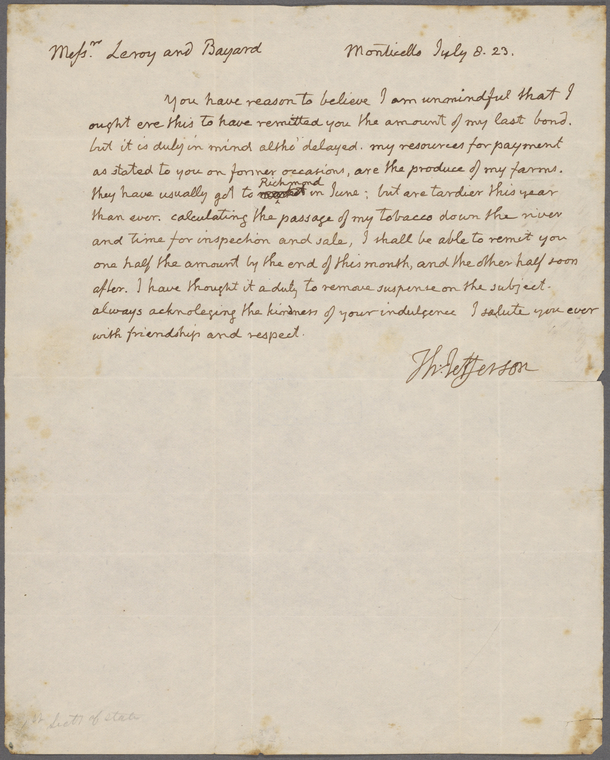 Messrs. Leroy and Bayard Monticello July 8. 23.
You have reason to believe I am unmindful that I
ought ere this to have remitted you the amount of my last bond.
but it is duly in mind altho' delayed. my resources for payment
as stated to you on former occasions, are the produce of my farms.
they have usually got to Richmond in June; but are tardier this year
than ever. calculating the passage of my tobacco down the river
and time for inspection and sale, I shall be able to remit you
one half the amount by the end of this month, and the other half soon
after. I have thought it a duty to remove suspense on the subject.
always acknoleging the kindness of your indulgence I salute you ever
with friendship and respect.
Th: Jefferson
Sect. of State